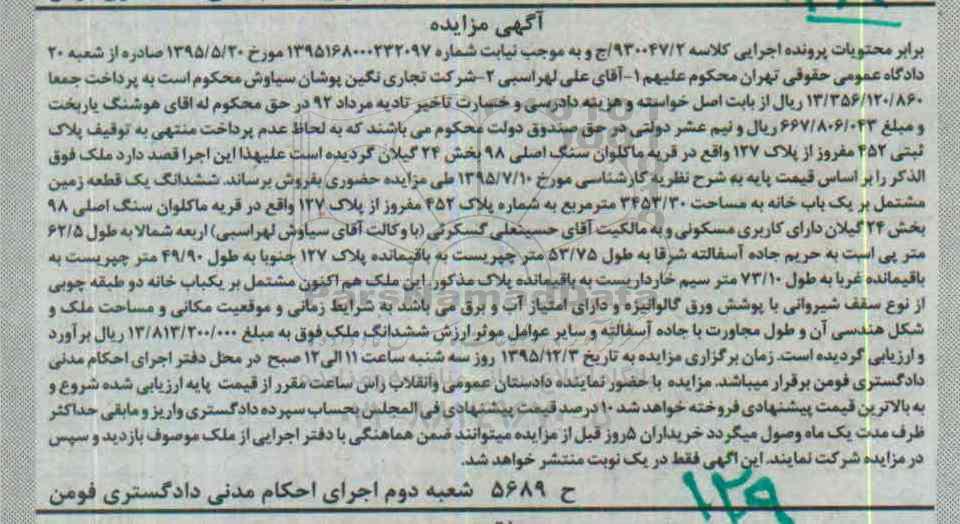 آگهی مزایده
برابر محتویات پرونده اجرایی کلاسه ۹۳۰۰۴۷/۲/ج و به موجب نیابت شماره ۱۳۹۵۱۶۸۰۰۰۲۳۲۰۹۷ مورخ ۱۳۹۵/۵/۲۰ صادره از شعبه ۲۰
دادگاه عمومی حقوقی تهران محکوم علیهم ۱-آقای علی لهراسبی ۲-شرکت تجاری نگین پوشان سیاوش محکوم است به پرداخت جمعا
۱۳/۳۵۶/۱۲۰/۸۶۰ ریال از بابت اصل خواسته و هزینه دادرسی و خسارت تاخیر تادیه مرداد ۹۲ در حق محکوم له اقای هوشنگ یاربخت
و مبلغ ۶۶۷/۸۰۶/۰۴۳ ریال و نیم عشر دولتی در حق صندوق دولت محکوم می باشند که به لحاظ عدم پرداخت منتهی به توقیف پلاک
ثبتی ۴۵۲ مفروز از پلاک ۱۲۷ واقع در قریه ماکلوان سنگ اصلی ۹۸ بخش ۲۴ گیلان گردیده است علیهذا این اجرا قصد دارد ملک فوق
الذکر را بر اساس قیمت پایه به شرح نظریه کارشناسی مورخ ۱۳۹۵/۷/۱۰ طی مزایده حضوری بفروش برساند. ششدانگ یک قطعه زمین
مشتمل بر یک باب خانه به مساحت ۳۴۵۳/۳۰ مترمربع به شماره پلاک ۴۵۲ مفروز از پلاک ۱۲۷ واقع در قریه ماکلوان سنگ اصلی ۹۸
بخش ۲۴ گیلان دارای کاربری مسکونی و به مالکیت آقای حسینعلی گسکرئی (با وکالت آقای سیاوش لهراسبی) اربعه شمالا به طول ۶۲/۵
متر پی است به حریم جاده آسفالته شرقا به طول ۵۳/۷۵ متر چپریست به باقیمانده پلاک ۱۲۷ جنوبا به طول ۴۹/۹۰ متر چپریست به
باقیمانده غربا به طول ۷۳/۱۰ متر سیم خارداریست به باقیمانده پلاک مذکور، این ملک هم اکنون مشتمل بر یکباب خانه دو طبقه چوبی
از نوع سقف شیروانی با پوشش ورق گالوانیزه و دارای امتیاز آب و برق می باشد به شرایط زمانی و موقعیت مکانی و مساحت ملک و
شکل هندسی آن و طول مجاورت با جاده آسفالته و سایر عوامل موثر ارزش ششدانگ ملک فوق به مبلغ ۱۳/۸۱۳/۲۰۰/۰۰۰ ریال برآورد
و ارزیابی گردیده است. زمان برگزاری مزایده به تاریخ ۱۳۹۵/۱۲/۳ روز سه شنبه ساعت ۱۱ الی ۱۲ صبح در محل دفتر اجرای احکام مدنی
دادگستری فومن برقرار میباشد. مزایده با حضور نماینده دادستان عمومی وانقلاب راس ساعت مقرر از قیمت پایه ارزیابی شده شروع و
به بالاترین قیمت پیشنهادی فروخته خواهد شد ۱۰ درصد قیمت پیشنهادی فی المجلس بحساب سپرده دادگستری واریز و مابقی حداکثر
ظرف مدت یک ماه وصول میگردد خریداران ۵روز قبل از مزایده میتوانند ضمن هماهنگی با دفتر اجرایی از ملک موصوف بازدید و سپس
در مزایده شرکت نمایند. این اگهی فقط در یک نوبت منتشر خواهد شد.
ح ۵۶۸۹ شعبه دوم اجرای احکام مدنی دادگستری فومن
۱۲۹